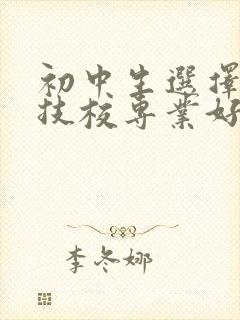 初中生選擇
技校專業好
李冬娜